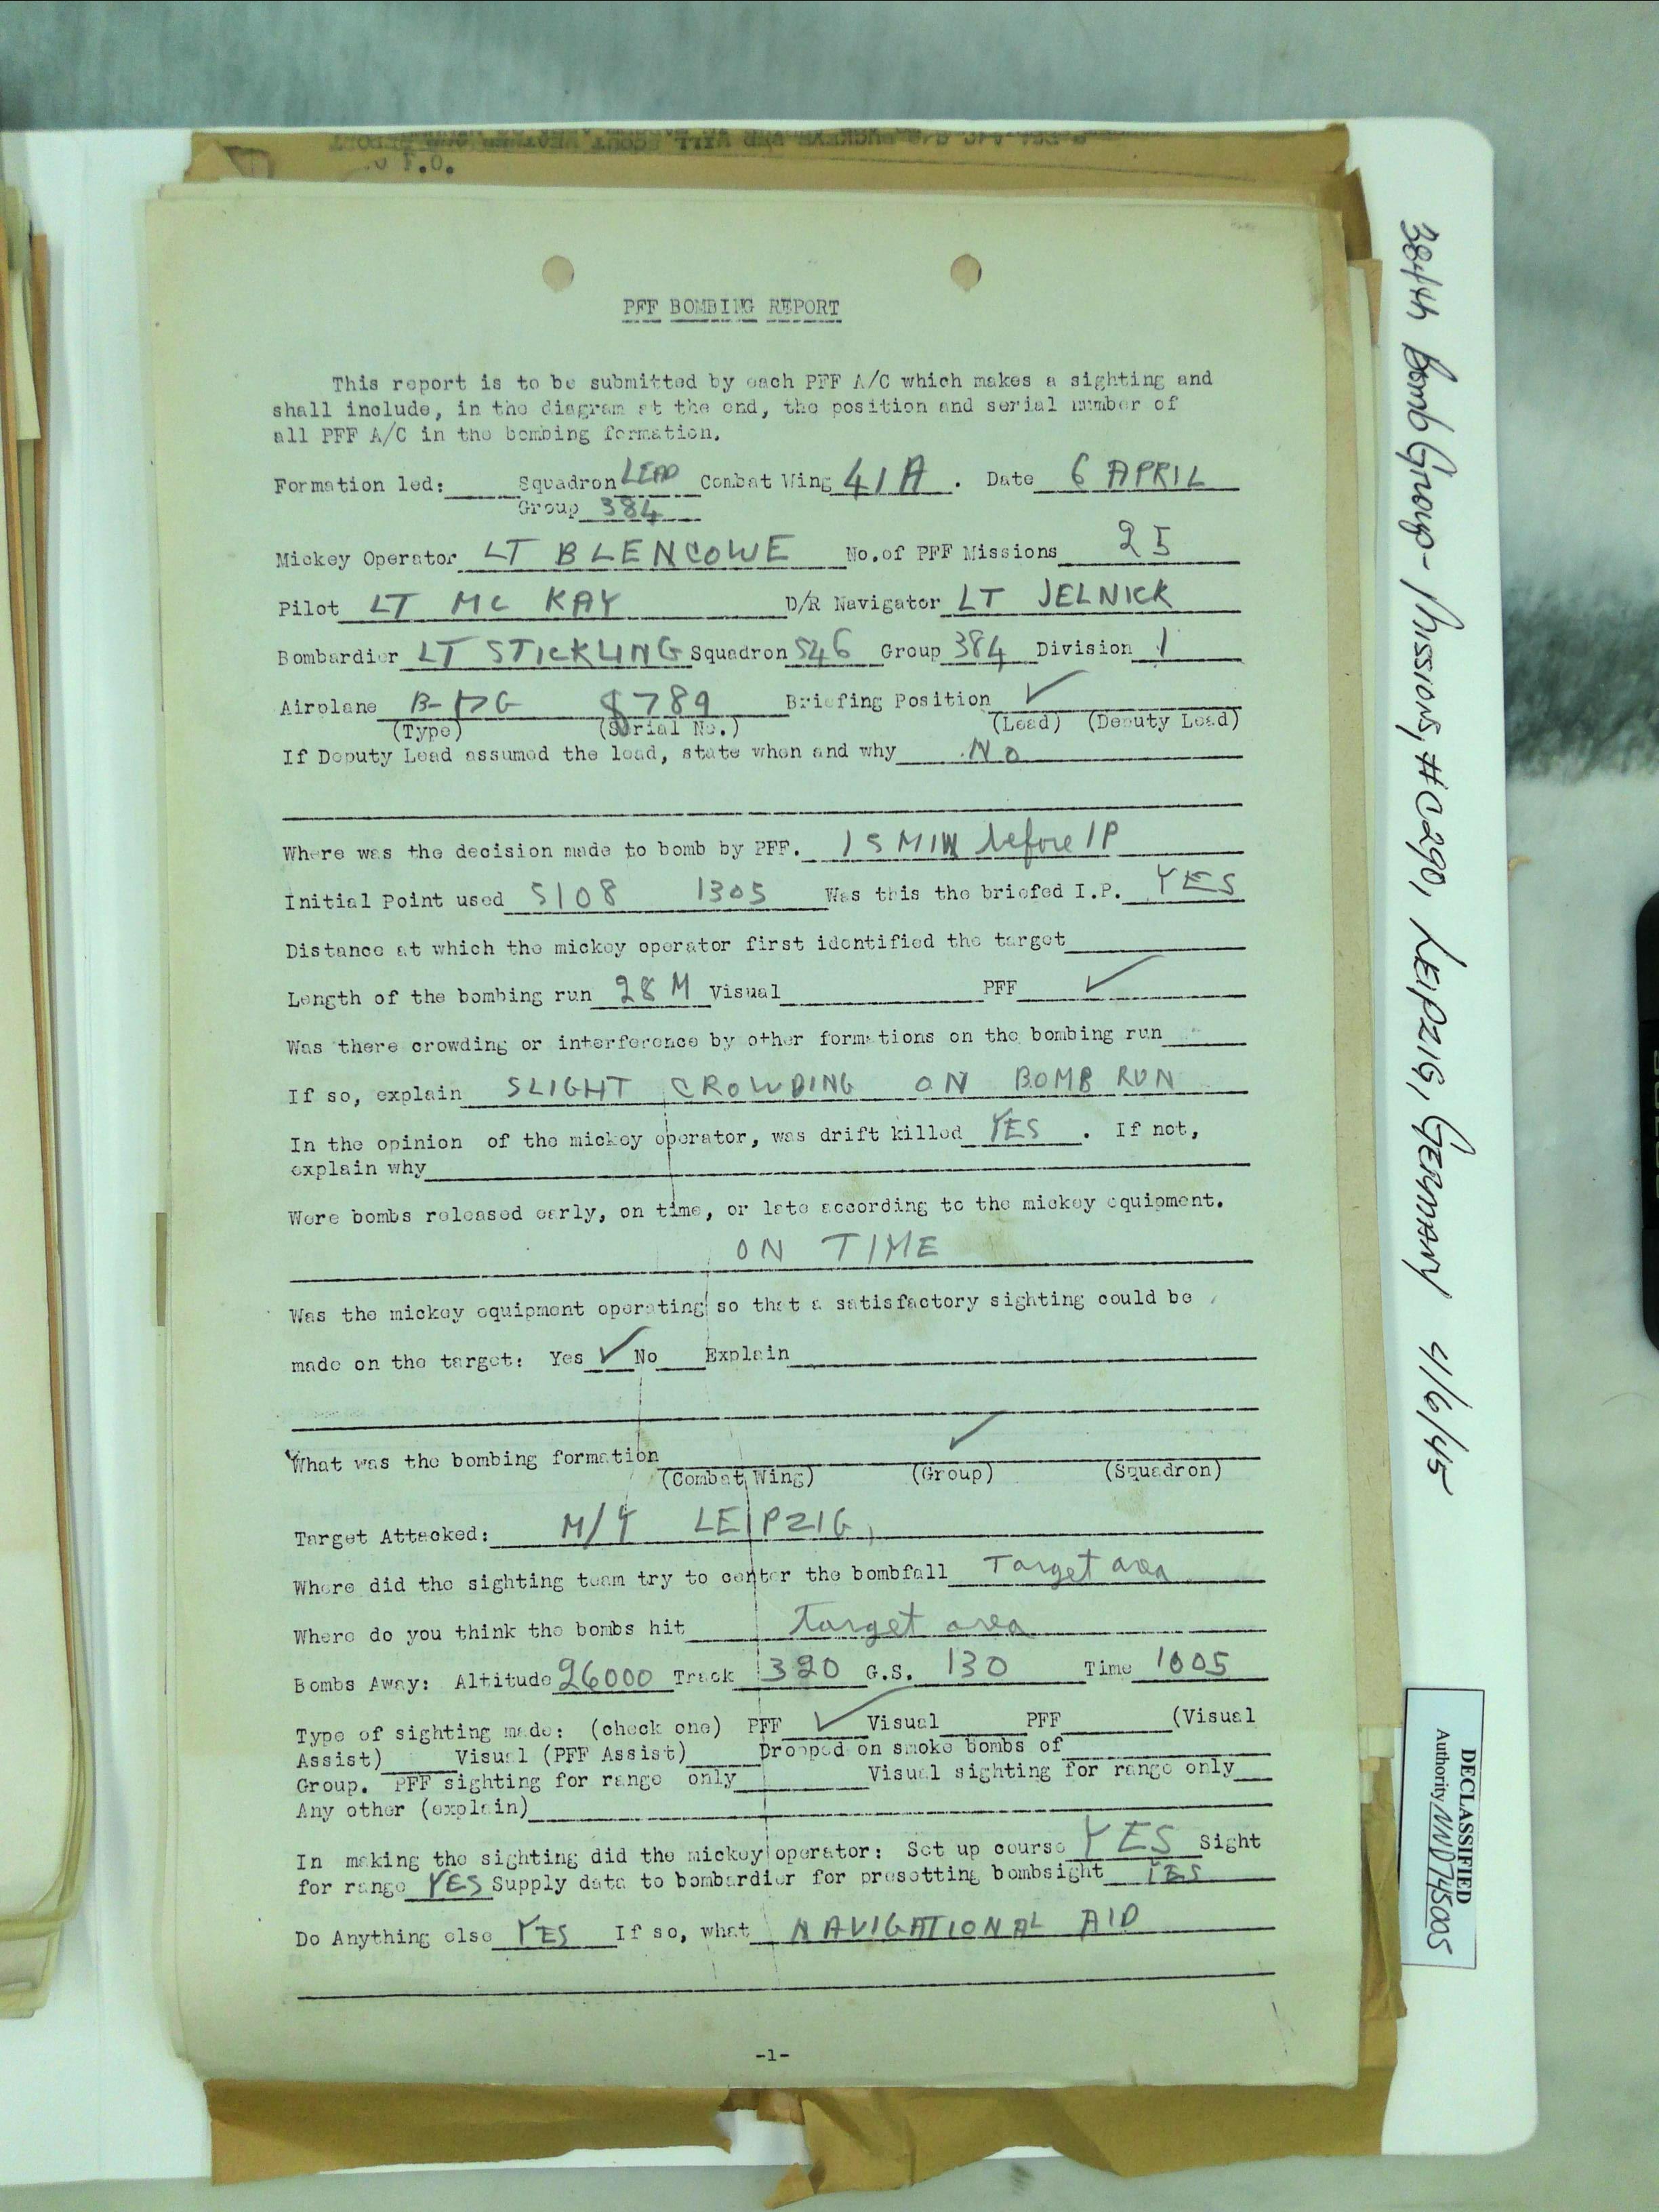 PFF BOMBING REPORT
This report is to be submitted by each PFF A/C which makes a sighting and
shall include, in the diagram at the end, the position and serial number of
all PFF A/C in the bombing formation.
Formation led: Squadron LEAD Combat Wing 41A. Date 6 APRIL
Group 384
Mickey Operator LT BLENCOWE No.of PFF Missions 25
Pilot LT MC KAY D/R Navigator LT JELNICK
Bombardier LT STICKLING Squadron 546 Group 384 Division 1
Airplane B-17G 8789 Briefing Position ✓
(Type) (Serial No.) (Lead) (Deputy Lead)
If Deputy Lead assumed the lead, state when and why No
Where was the decision made to bomb by PFF. 15 MIN before IP
Initial Point used 5108 1305 Was this the briefed I.P. YES
Distance at which the mickey operator first identified the target
Length of the bombing run 28 M Visual PFF ✓
Was there crowding or interference by other formations on the bombing run
If so, explain SLIGHT CROWDING ON BOMB RUN
In the opinion of the mickey operator, was drift killed YES. If not,
explain why
Were bombs released early, on time, or late according to the mickey equipment.
ON TIME
Was the mickey equipment operating so that a satisfactory sighting could be
made on the target: Yes ✓ No Explain
What was the bombing formation ✓
(Combat Wing) (Group) (Squadron)
Target Attacked: M/Y LEIPZIG
Where did the sighting team try to center the bombfall Target area
Where do you think the bombs hit Target area
Bombs Away: Altitude 26000 Track 320 G.S. 130 Time 1005
Type of sighting made: (check one) PFF ✓ Visual PFF (Visual
Assist) Visual (PFF Assist) Dropped on smoke bombs of
Group. PFF sighting for range only Visual sighting for range only
Any other (explain)
In making the sighting did the mickey operator: Set up course YES Sight
for range YES Supply data to bombardier for presetting bombsight YES
Do Anything else YES If so, what NAVIGATIONAL AID
-1-
384th Bomb Group - Missions, #0290, LEIPZIG, GERMANY 4/6/45
DECLASSIFIED
Authority NND745005